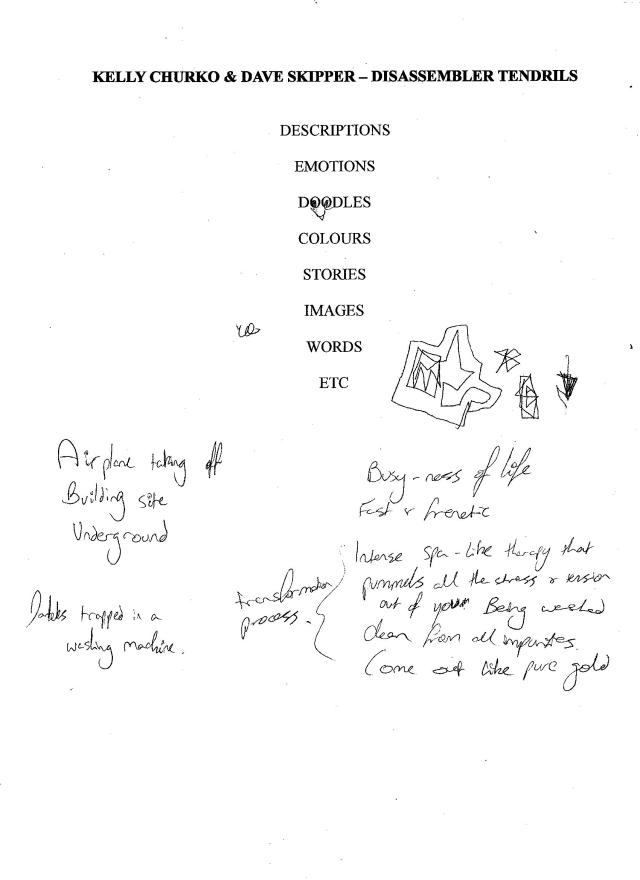 KELLY CHURKO & DAVE SKIPPER – DISASSEMBLER TENDRILS
DESCRIPTIONS
EMOTIONS
DOODLES
COLOURS
STORIES
IMAGES
WORDS
ETC
Airplane taking off
Building site
Underground
Daleks trapped in a
washing machine.
Busy-ness of life
Fast & frenetic
transformation
process.
Intense Spa-like therapy that
pummels all the stress & tension
out of you. Being washed
clean from all impurities.
Come out like pure gold